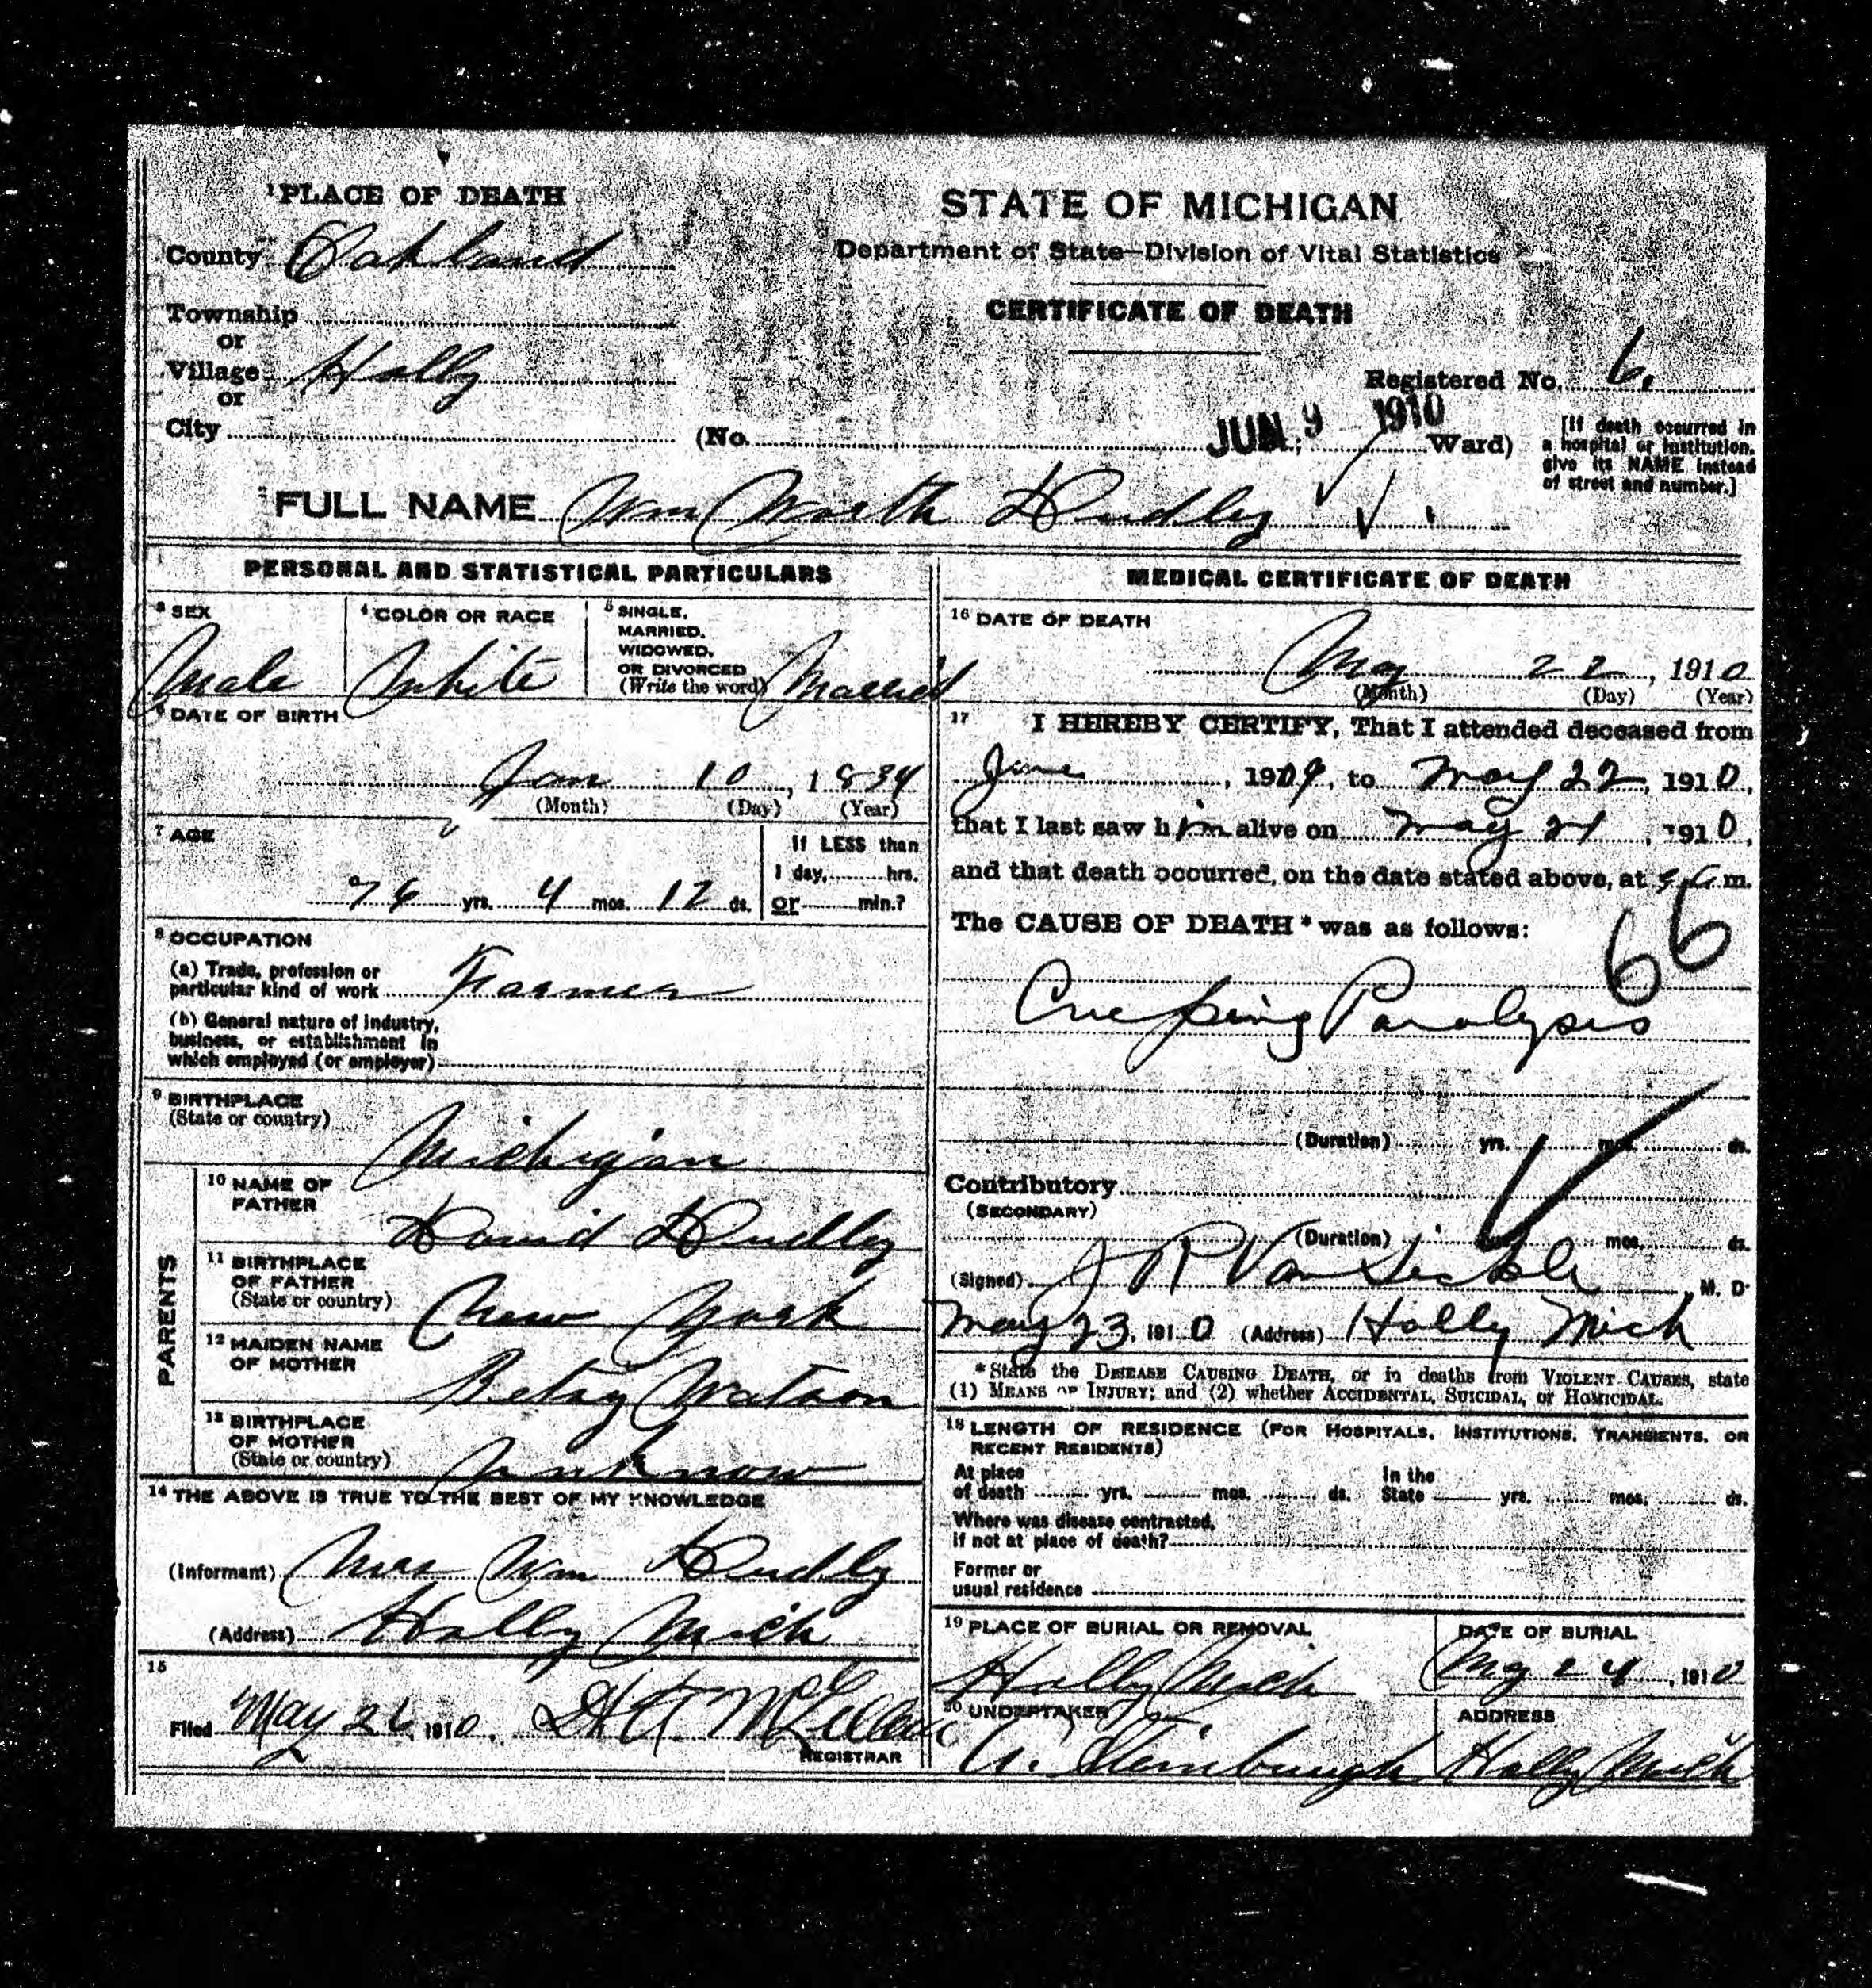 1 PLACE OF DEATH
County Oakland
Township
or
Village Holly
or
City
STATE OF MICHIGAN
Department of State—Division of Vital Statistics
CERTIFICATE OF DEATH
Registered No. 6.
(No. JUN 9 1910 Ward)
[If death occurred in
a hospital or institution,
give its NAME instead
of street and number.]
2 FULL NAME Wm Worth Dudley
PERSONAL AND STATISTICAL PARTICULARS
3 SEX
Male
4 COLOR OR RACE
White
5 SINGLE,
MARRIED,
WIDOWED,
OR DIVORCED
(Write the word) Married
6 DATE OF BIRTH
Jan 10, 1834
(Month) (Day) (Year)
7 AGE
76 yrs. 4 mos. 12 ds.
If LESS than
1 day, hrs.
or min.?
8 OCCUPATION
(a) Trade, profession or
particular kind of work Farmer
(b) General nature of industry,
business, or establishment in
which employed (or employer)
9 BIRTHPLACE
(State or country)
Michigan
PARENTS
10 NAME OF
FATHER
David Dudley
11 BIRTHPLACE
OF FATHER
(State or country) New York
12 MAIDEN NAME
OF MOTHER
Betsy Watson
13 BIRTHPLACE
OF MOTHER
(State or country) Unknow
14 THE ABOVE IS TRUE TO THE BEST OF MY KNOWLEDGE
(Informant) Mrs Wm Dudley
(Address) Holly Mich
15
Filed May 26, 1910, McLellan
REGISTRAR
MEDICAL CERTIFICATE OF DEATH
16 DATE OF DEATH
May 22, 1910
(Month) (Day) (Year)
17 I HEREBY CERTIFY, That I attended deceased from
June, 1909, to May 22, 1910,
that I last saw him alive on May 21, 1910,
and that death occurred, on the date stated above, at 5 a m.
The CAUSE OF DEATH * was as follows:
66
Creeping Paralysis
(Duration) yrs. mos. ds.
Contributory
(SECONDARY)
(Duration) yrs. mos. ds.
(Signed) J R Van Sickle, M. D.
May 23, 1910 (Address) Holly Mich
* State the DISEASE CAUSING DEATH, or in deaths from VIOLENT CAUSES, state
(1) MEANS OF INJURY; and (2) whether ACCIDENTAL, SUICIDAL, or HOMICIDAL.
18 LENGTH OF RESIDENCE (FOR HOSPITALS, INSTITUTIONS, TRANSIENTS, OR
RECENT RESIDENTS)
At place
of death yrs. mos. ds.
In the
State yrs. mos. ds.
Where was disease contracted,
if not at place of death?
Former or
usual residence
19 PLACE OF BURIAL OR REMOVAL
Holly Mich
DATE OF BURIAL
May 24, 1910
20 UNDERTAKER
A. Steinbaugh
ADDRESS
Holly Mich